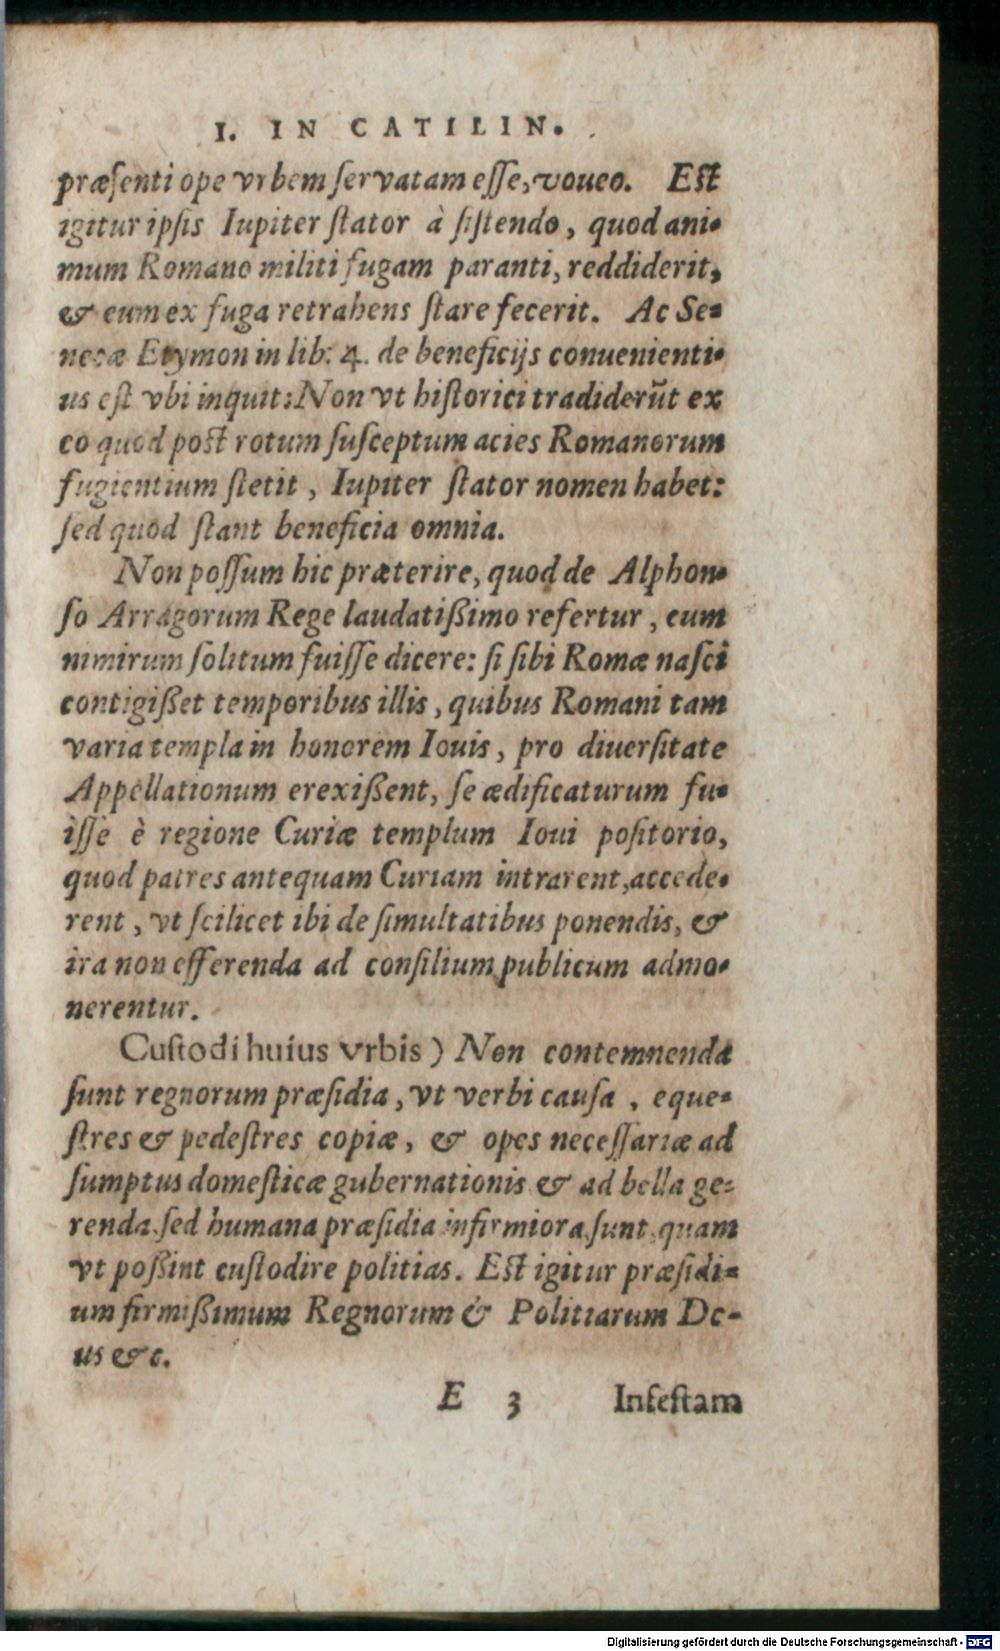 I. IN CATILIN.
præsenti ope vrbem servatam esse, voueo. Est
igitur ipsis Iupiter stator à sistendo, quod ani-
mum Romano militi fugam paranti, reddiderit,
& eum ex fuga retrahens stare fecerit. Ac Se-
necæ Etymon in lib: 4. de beneficijs conuenienti-
us est vbi inquit: Non vt historici tradiderūt ex
eo quod post votum susceptum acies Romanorum
fugientium stetit, Iupiter stator nomen habet:
sed quod stant beneficia omnia.
Non possum hic præterire, quod de Alphon-
so Arragorum Rege laudatißimo refertur, eum
nimirum solitum fuisse dicere: si sibi Romæ nasci
contigißet temporibus illis, quibus Romani tam
varia templa in honorem Iouis, pro diuersitate
Appellationum erexißent, se ædificaturum fu-
isse è regione Curiæ templum Ioui positorio,
quod patres antequam Curiam intrarent, accede-
rent, vt scilicet ibi de simultatibus ponendis, &
ira non efferenda ad consilium publicum admo-
nerentur.
Custodi huius vrbis) Non contemnenda
sunt regnorum præsidia, vt verbi causa, eque-
stres & pedestres copiæ, & opes necessariæ ad
sumptus domesticæ gubernationis & ad bella ge-
renda, sed humana præsidia infirmiora sunt, quam
vt poßint custodire politias. Est igitur præsidi-
um firmißimum Regnorum & Politiarum De-
us &c.
E 3 Infestam
Digitalisierung gefördert durch die Deutsche Forschungsgemeinschaft - DFG